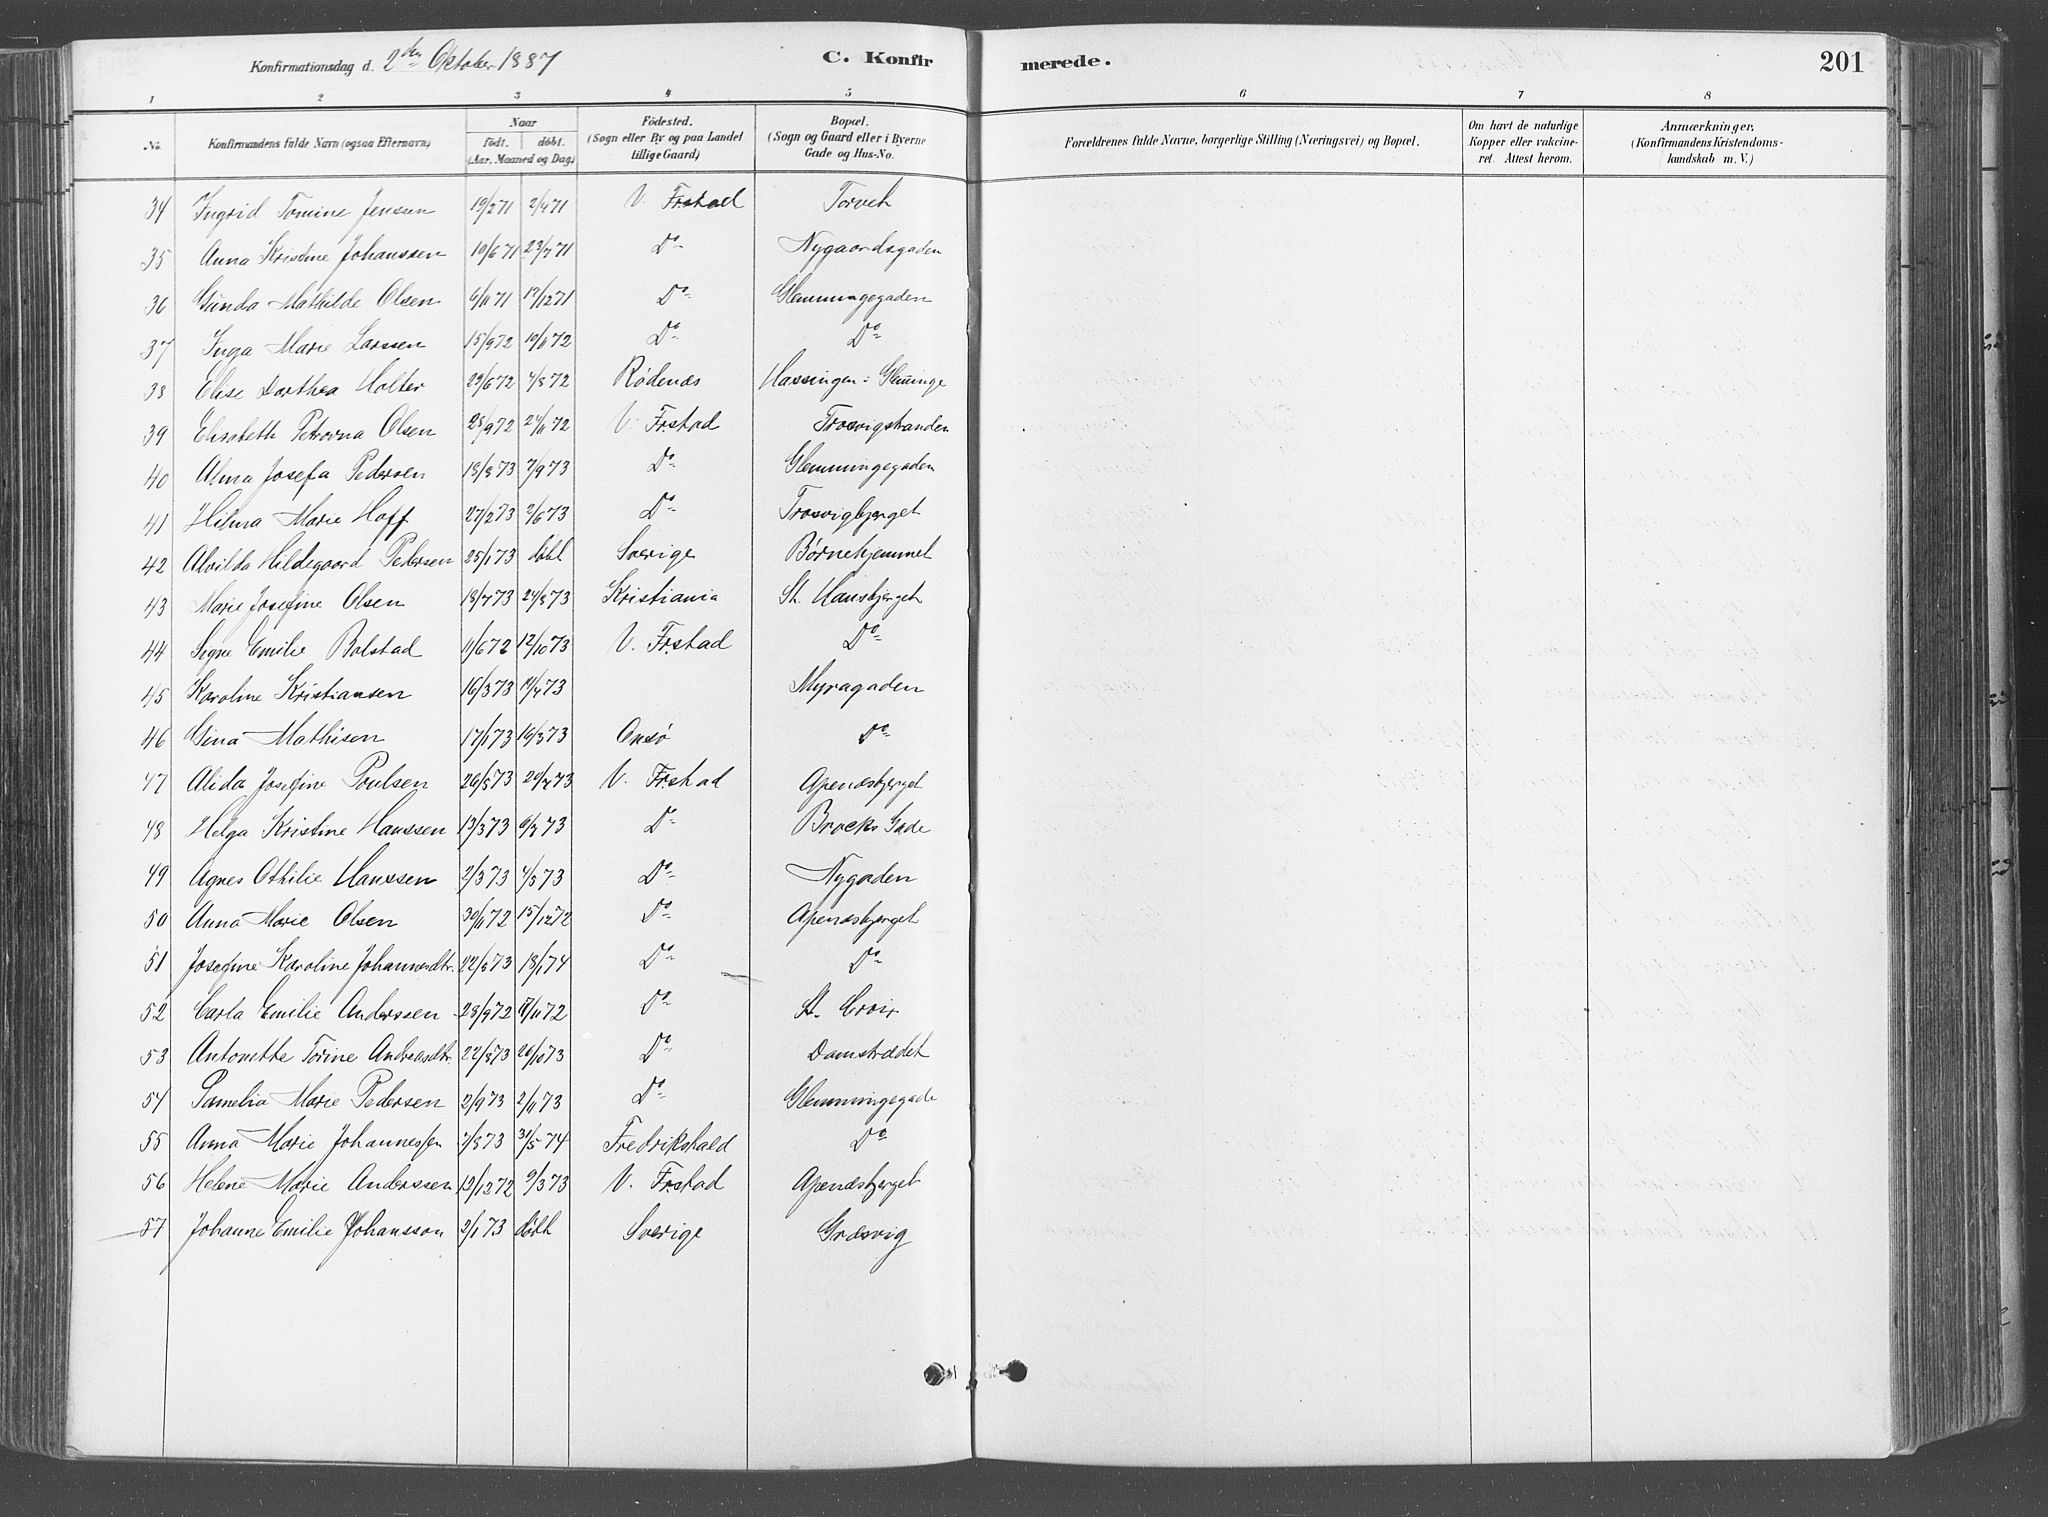 Konfirmationsdag d. 2den Oktober 1887
C. Konfir
merede.
201
1 2 3 4 5 6 7 8
No.
Konfirmandens fulde Navn (ogsaa Efternavn)
Naar
født. døbt.
(Aar, Maaned og Dag)
Födested.
(Sogn eller By og paa Landet
tillige Gaard)
Bopæl.
(Sogn og Gaard eller i Byerne
Gade og Hus-No.
Forældrenes fulde Navne, borgerlige Stilling (Næringsvei) og Bopæl.
Om havt de naturlige
Kopper eller vakcine-
ret. Attest herom.
Anmærkninger,
(Konfirmandens Kristendoms-
kundskab m. V.)
34 Ingrid Tomine Jensen 19/2 71 2/4 71 V. Frstad Torvet
35 Anna Kristine Johanssen 10/6 71 23/7 71 Do Nygaardsgaden
36 Gunda Mathilde Olsen 6/11 71 17/12 71 Do Glemmingegaden
37 Inga Marie Larsen 15/9 72 10/11 72 Do Do
38 Elise Dorthea Holter 29/6 72 4/8 72 Rødenæs Hassingen : Glemminge
39 Elisabeth Petrovna Olsen 25/9 72 24/11 72 V. Frstad Trosvigstranden
40 Alma Josefa Pedersen 18/8 73 7/9 73 Do Glemmingegaden
41 Hilma Marie Hoff 27/2 73 2/6 73 Do Trosvigbjerget
42 Alvilda Hildegaard Pedersen 25/1 73 døbt Sverige Børnehjemmet
43 Marie Josefine Olsen 18/7 73 24/8 73 Kristiania St. Hansbjerget
44 Signe Emilie Bolstad 11/6 72 12/10 73 V. Frstad Do
45 Karoline Kristiansen 16/3 73 14/4 73 Myragaden
46 Gina Mathisen 17/1 73 16/3 73 Onsø Do
47 Alida Josefine Poulsen 26/5 73 20/7 73 V. Frstad Apenæsbjerget
48 Helga Kristine Hanssen 13/3 73 6/7 73 Do Brocks Gade
49 Agnes Othilie Hanssen 2/3 73 4/5 73 Do Nygaden
50 Anna Marie Olsen 30/11 72 15/12 72 Do Apenæsbjerget
51 Josefine Karoline Johannesdtr. 22/8 73 18/1 74 Do Do
52 Carla Emilie Anderssen 28/9 72 17/11 72 Do St. Croix
53 Antonette Torine Andreasdtr. 22/8 73 26/10 73 Do Damstrædet
54 Pamelia Marie Pedersen 2/9 73 2/11 73 Do Glemmingegade
55 Anna Marie Johannessen 7/8 73 31/5 74 Fredrikshald Do
56 Helene Marie Anderssen 19/12 72 9/3 73 V. Frstad Apenæsbjerget
57 Johanne Emilie Johansson 2/1 73 døbt Sverige Græsvig